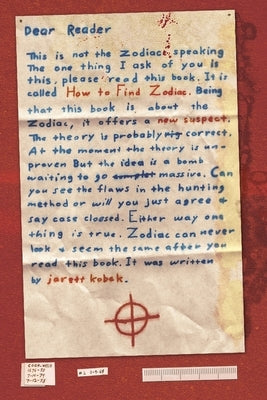 Dear Reader
This is not the Zodiac speaking
The one thing I ask of you is
this, please read this book. It is
called How to Find Zodiac. Being
that this book is about the
Zodiac, it offers a new suspect.
The theory is probably correct.
At the moment the theory is un-
proven But the idea is a bomb
waiting to go massive. Can
you see the flaws in the hunting
method or will you just agree &
say case clossed. Either way one
thing is true. Zodiac can never
look & seem the same after you
read this book. It was written
by jarett kobek.